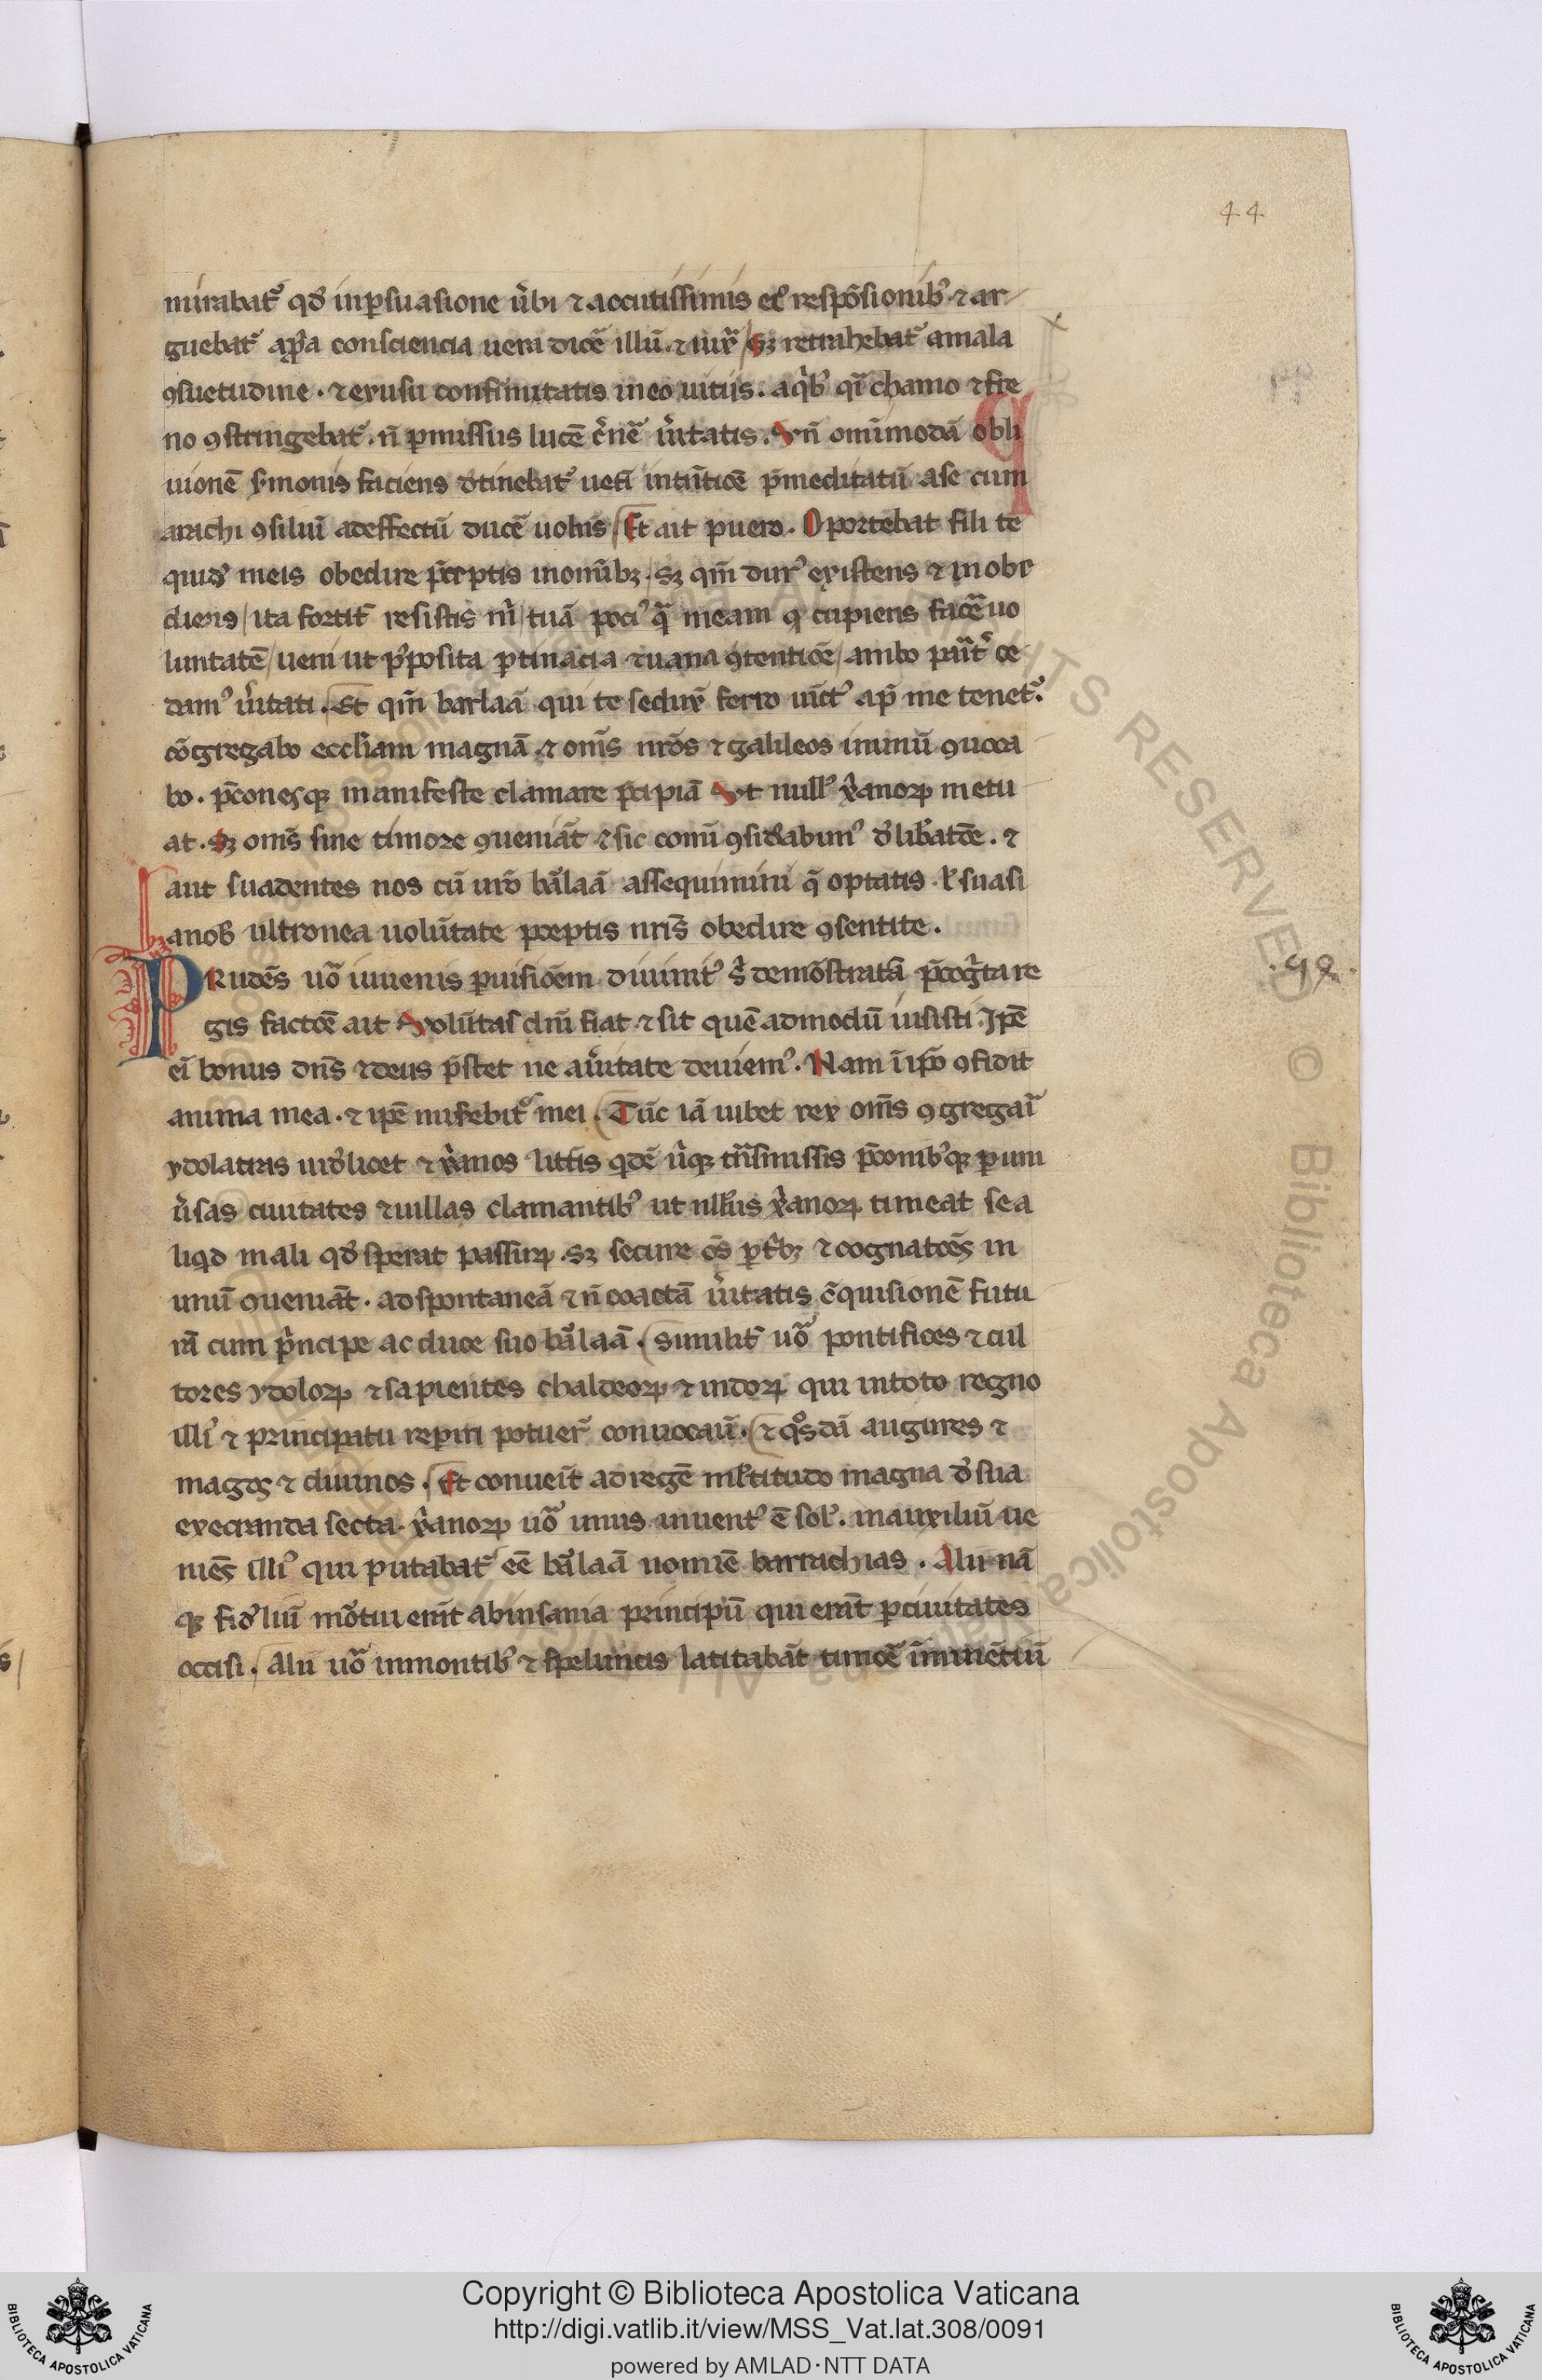 44
mirabat᷑ qď inp̱suasione ůbi ⁊ accutissimis ei᷒ respōsionib᷒ ⁊ ar
guebat᷑ a pp̄a consciencia uera dic̄e illū ⁊ iux̄ sꝫ retrahebat᷑ a mala
ꝯsuetudine . ⁊ ex usu confirmitatis in eo uitiis . a qͥb᷒ qͣi chamo ⁊ fre
no ꝯstringebat᷑ . n̄ ꝑmissus lucē c̄nē ůitatis . Vn̄ omīmodā obli
uionē ẜmonis faciens ďtinebat᷑ ueł intūtiōē p̄meditatū a se cum
arachi ꝯsiliū ad effectū ducē uolūs Et ait puero . Oportebat fili te
quiď meis obedire p̄ceptis in oīnibꝫ . sꝫ qm̄ dur᷒ existens ⁊ inobe
diens / ita fortit᷑ resistis m̊ / tuā poci᷒ qͣ meam q̨ cupiens facē uo
luntatē / ueni ut p᷒posita ꝑtinacia ⁊ uana ꝯtentiōē / ambo parit᷑ ce
dam᷒ ůitati . Et qm̄ barlaā qui te sedux̄ ferro uict᷒ ap̄ me tenet᷑ .
cōgregabo eccłiam magnā ⁊ om̄s nr̄os ⁊ galileos in unū ꝯuoca
bo . p̄conesqꝫ manifeste clamare p̄cipiā Vt null᷒ xͥanoꝝ metu
at . sꝫ om̄s sine timore ꝯueniāt ⁊ sic comūi ꝯsiďabim᷒ ďlibatōē . ⁊
aut suadentes nos cū urō bͣlaā assequimini q̄ optatis . ł suasi
a nob̄ ultronea uolūtate p̄ceptis nrīs obedire ꝯsentite .
PRudēs uͦo iuuenis ꝑ uisiōem diuinit᷒ s̊ demōstratā p̄cogͥta re
gis factōē ait Volūtas dnī fiat ⁊ sit quēadmodū iusisti . Ipē
eī bonus dn̄s ⁊ deus p̄stet ne a ůitate deuiem᷒ . Nam ī ip̄o ꝯfidit
anima mea . ⁊ ipē miserebit᷑ mei . Tūc iā iubet rex om̄s ꝯgregaī
ydolatras uiďlicet ⁊ xͥanos litt̄is qͥdē ůiqꝫ tnͣsmissis p̄conib᷒qꝫ ꝑ uni
ůsas ciuitates ⁊ uillas clamantib᷒ ut nłłus xͥanoꝝ timeat se a
liqͥd mali qď sperat passuꝝ . sꝫ secure os̄ p̄t᷑bꝫ ⁊ cognatōēs in
unū ꝯueniāt . ad spontaneā ⁊ n̄ coactā ůitatis īquisionē futu
rā cum pͥncipe ac duce suo bͣlaā . Similit᷑ uͦo pontifices ⁊ cul
tores ydoloꝝ ⁊ sapientes chaldeoꝝ ⁊ indoꝝ qui in toto regno
illi᷒ ⁊ principatu rep̱iri potuer̄ conuocaū . ⁊ qͦsdā augures ⁊
magos ⁊ diuinos . Et conueīt ad regē mł̄titudo magna ď sua
execranda secta . xͥanoꝝ uͦo unus inuent᷒ ē sol᷒ . in auxiliū ue
niēs illi᷒ qui putabat᷑ eē bͣlaā nomīe barrachias . Alii nā
qꝫ fiďliū mortui erāt ab insania principū qui erāt ꝑ ciuitates
occisi . Alii uͦo in montib᷒ ⁊ speluncis latitabāt timōē īminētiū
Copyright © Biblioteca Apostolica Vaticana
http://digi.vatlib.it/view/MSS_Vat.lat.308/0091
powered by AMLAD·NTT DATA